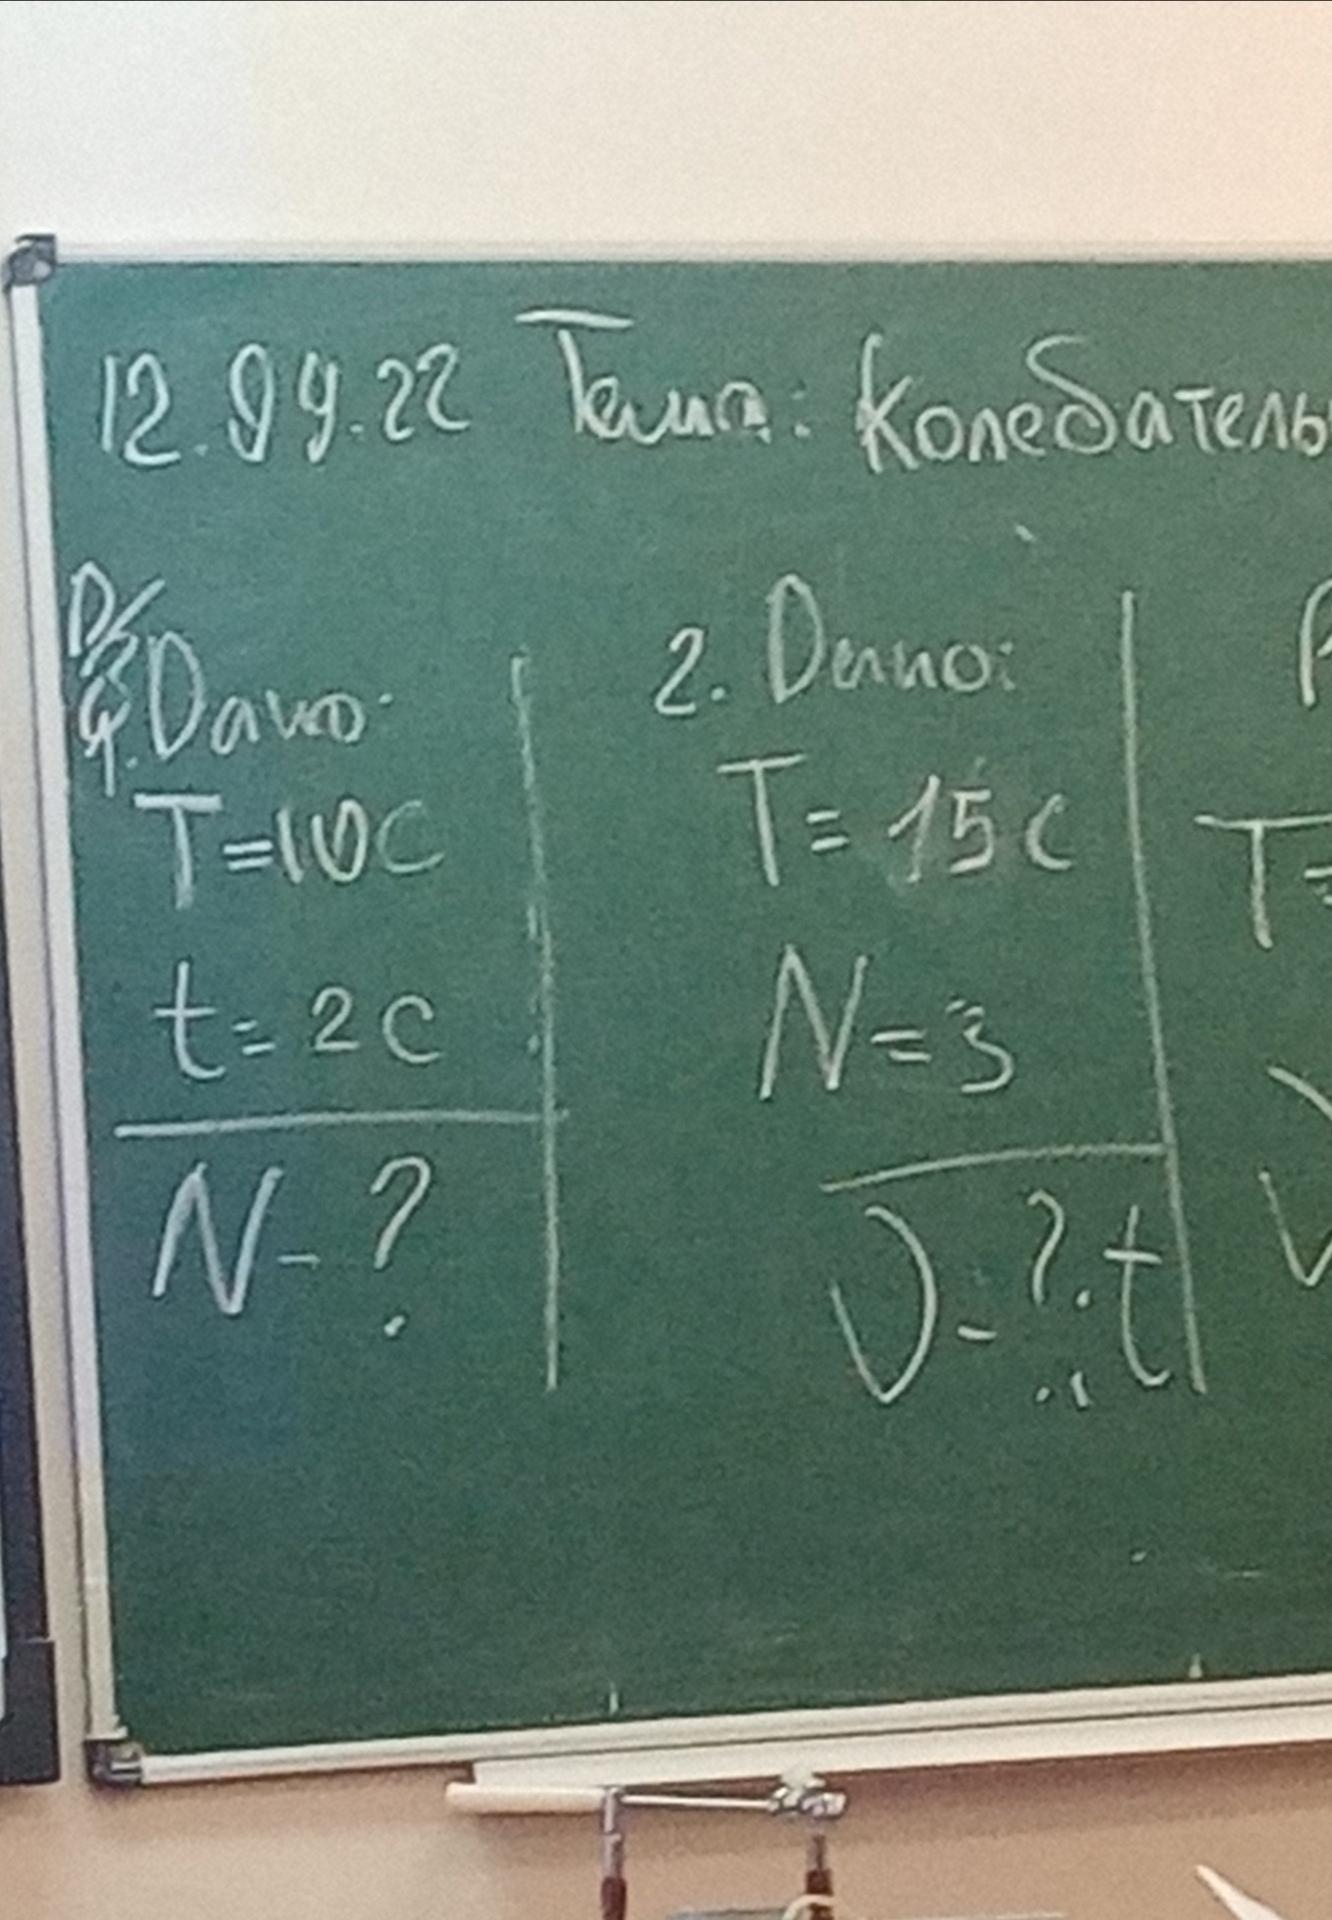 12.09.22 Тема: Колебатель
Д/з
1. Дано:
T=10с
t=2с
N-?
2. Дано:
T=15с
N=3
ν-? t-?
T=